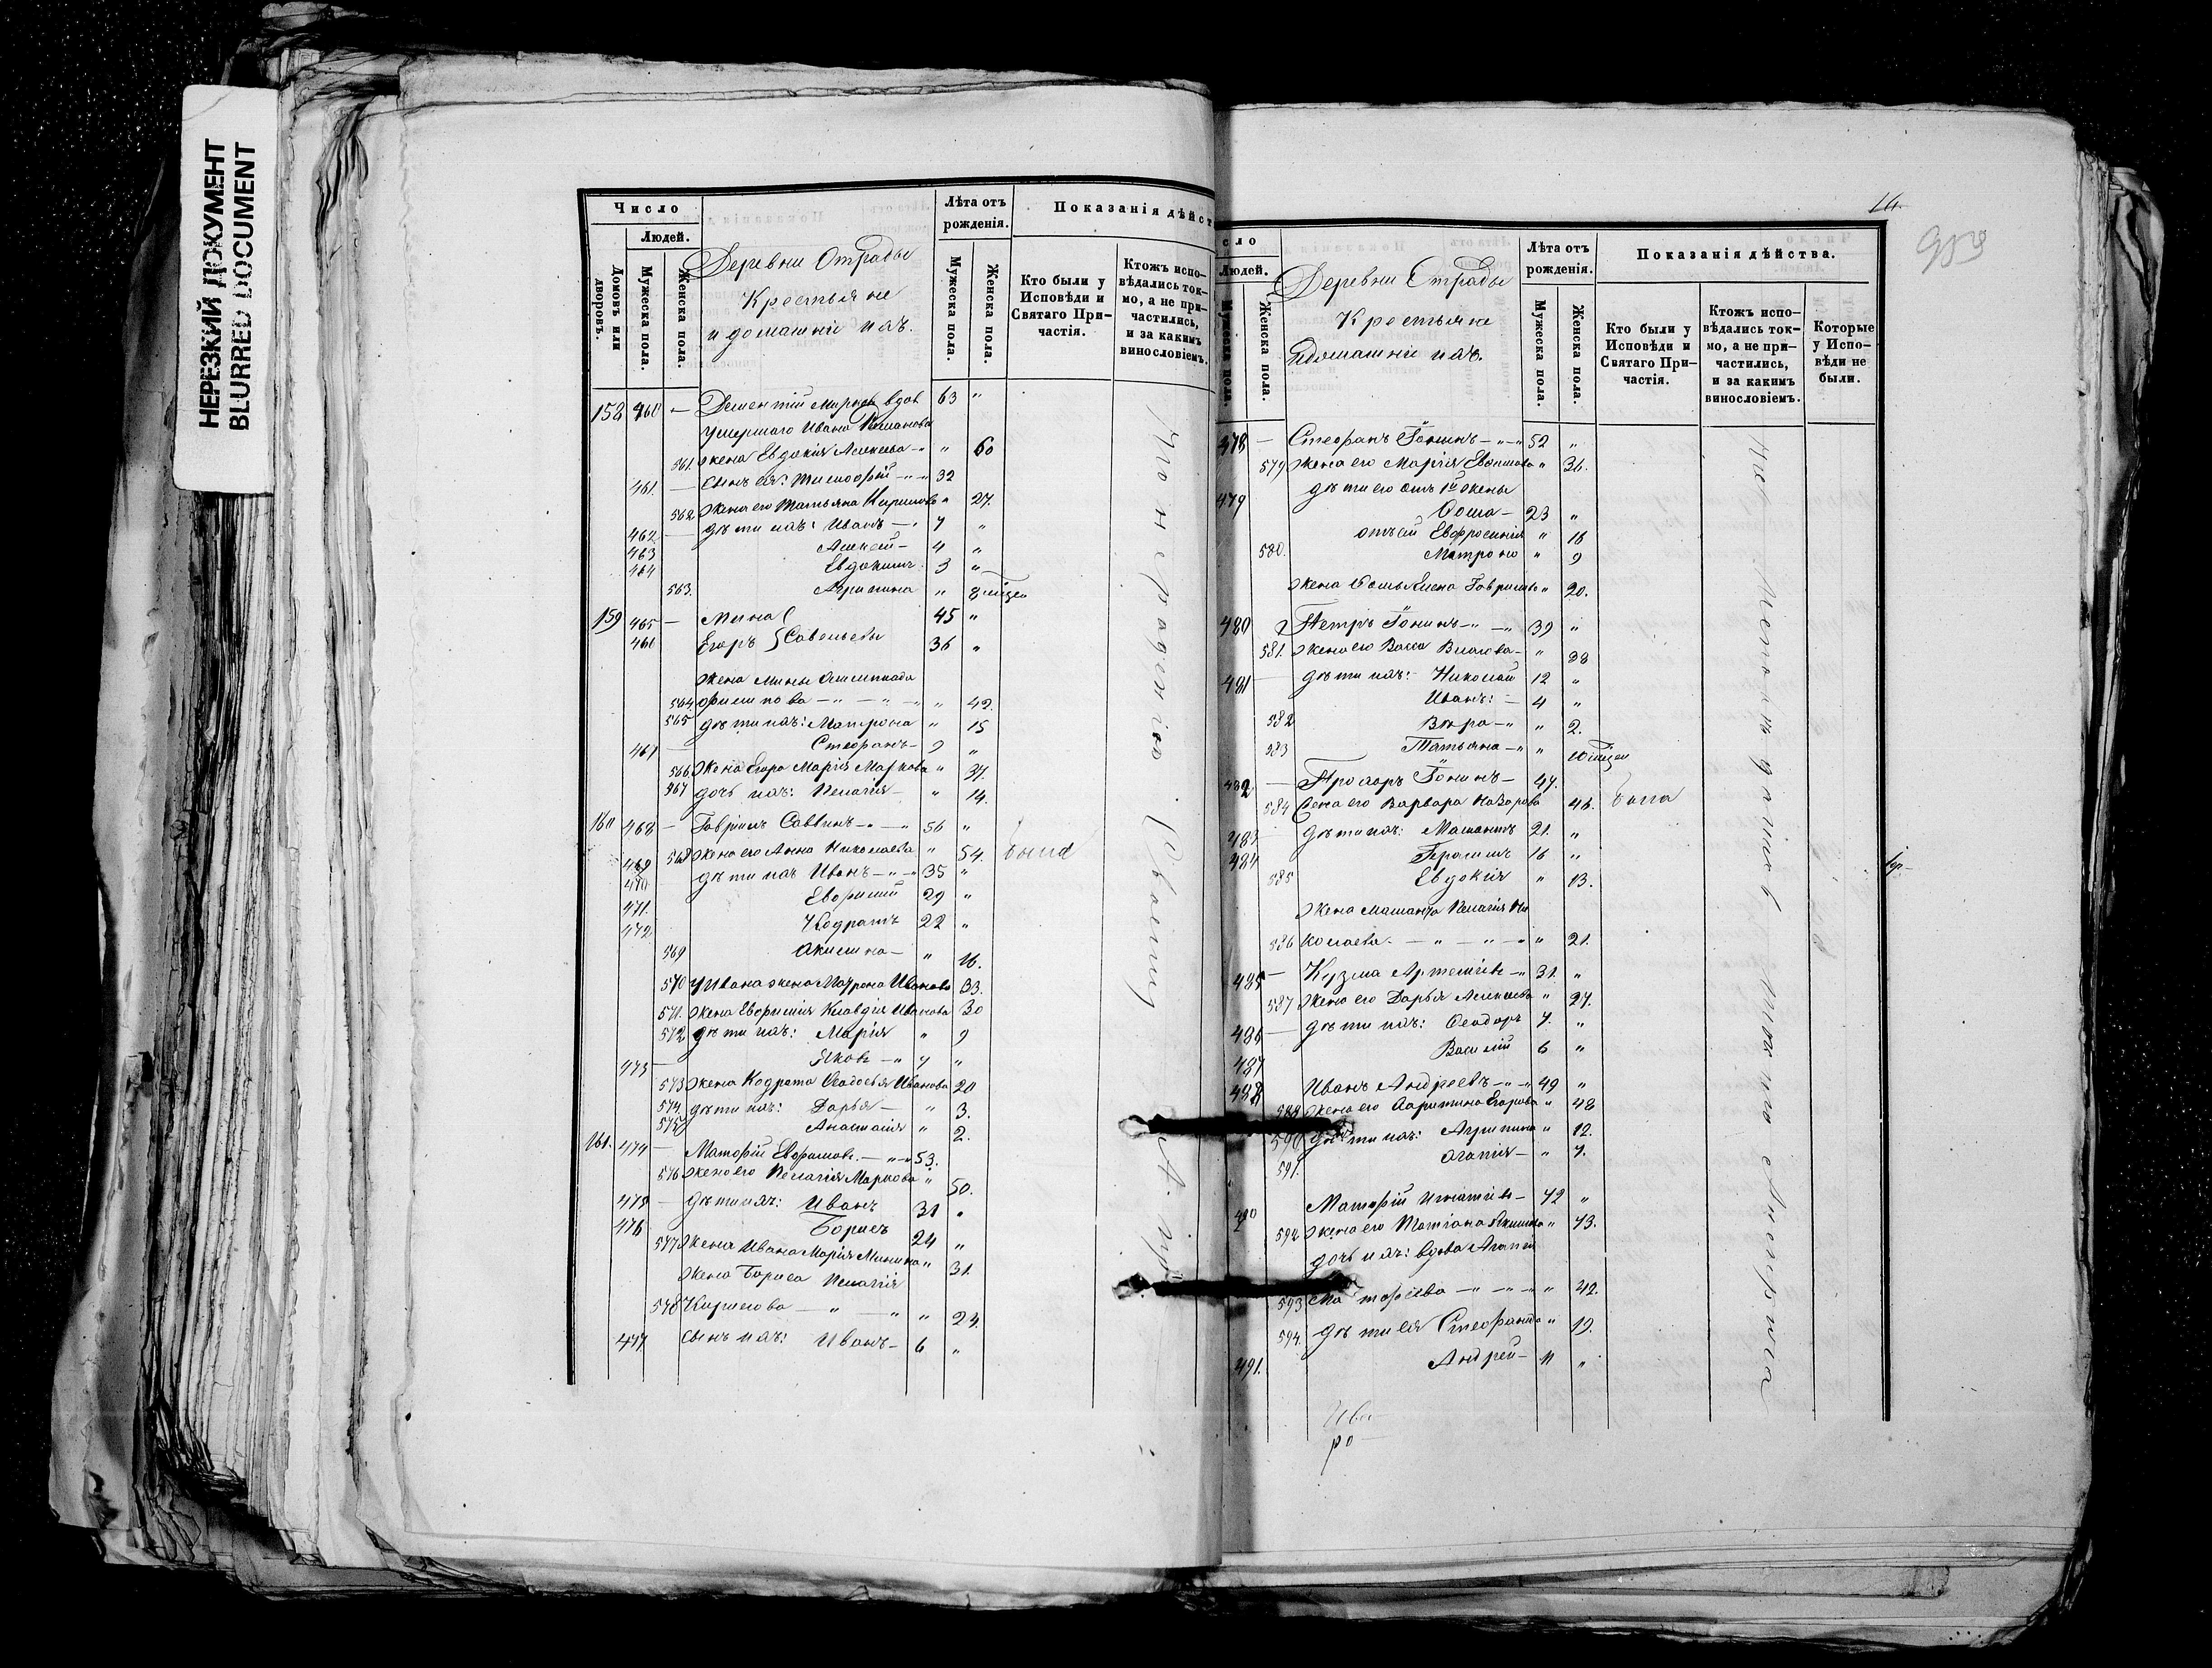 НЕРЕЗКИЙ ДОКУМЕНТ
BLURRED DOCUMENT
Число
Людей.
Домовъ или дворовъ.
Мужеска пола.
Женска пола.
Деревни Отрады
Крестьяне
и домашніе ихъ.
Лѣта отъ рожденія.
Мужеска пола.
Женска пола.
Показанія дѣйст
Кто были у Исповѣди и Святаго Причастія.
Ктожъ исповѣдались токмо, а не причастились, и за какимъ винословіемъ.
158 460 — Дементій вдов 63 "
Умершаго Ивана
561. жена Евдокія Алексѣева " 60
461. — сынъ ея: Тимофій 32
562 жена его Татьяна " 27.
462. — дѣти ихъ: Иванъ — 7 "
463 Алексѣй — 4 "
464 Евдокимъ 3 "
563. Агрипина "
159 465 — Мина 45 "
466 Егоръ } Савельевы 36 "
жена Мины Олимпиада
564. Филипова " 42.
565 дѣти ихъ: Матрона " 15
467 — Стефанъ — 9 "
566 Жена Егора Марія Маркова " 37.
567 дочь ихъ: Пелагія — " 14.
160 468 — Гавріилъ Саввинъ 56 "
568 жена его Анна Николаева " 54. была
469 дѣти ихъ Иванъ 35 "
470
471. Евфимій 29 "
472 Кодратъ 22 "
569 Акилина — " 16.
570 у Ивана жена Матрона Иванова 33.
571. Жена Евфимія Клавдія Иванова 30
572 дѣти ихъ: Марія " 9
473 — Яковъ 7 "
573 Жена Кодрата Ѳеодосья Иванова 20
574. дѣти ихъ: Дарья — " 3.
575 Анастасія " 2.
161. 474 — Матфій Ефимовъ 53.
576 жена его Пелагія Маркова " 50.
475 — дѣти ихъ: Иванъ 31 "
476 Борисъ 24 "
577 Жена Ивана Марія Минина " 31.
Жена Бориса Пелагія
578 Кирилова " 24.
477 сынъ ихъ: Иванъ — 6 "
По нерадѣнію
16.
959
сло
Людей.
Мужеска пола.
Женска пола.
Деревни Отрады
Крестьяне
и домашніе ихъ.
Лѣта отъ рожденія.
Мужеска пола.
Женска пола.
Показанія дѣйства.
Кто были у Исповѣди и Святаго Причастія.
Ктожъ исповѣдались токмо, а не причастились, и за какимъ винословіемъ.
Которые у Исповѣди не были.
478 — Стефанъ Іонинъ 52 "
579 Жена его Марія " 36.
479 дѣти его отъ 1й жены
Ѳома — 23 "
Евфросинія " 16
580. Матрона " 9
жена Ѳомы Елена Гаврилова " 20.
480 Петръ Іонинъ 39 "
581. Жена его Васса Власова — " 38
481 — дѣти ихъ: Николай 12 "
Иванъ: — 4 "
582 Вѣра " 2.
583 Татьяна "
482 — Прохоръ Іонинъ — 47.
584 Жена его Варвара Назарова 46. была
483 — дѣти ихъ: 21. "
484 Герасимъ 16 "
585 Евдокія " 13.
Пелагія Ни
586 колаева. " 21.
485 — Кузма Артеміевъ 31. "
587 Жена его Дарья Алексѣева " 27.
486 — дѣти ихъ: Ѳеодоръ 7. "
487 Василій 6 "
488 Иванъ Андреевъ 49 "
588 жена его Егорова " 48
590 дѣти ихъ: Агрипина " 12.
591. Агапія — " 7.
490 Матфій Игнатіевъ — 72 "
592 жена его Татіана " 73.
дочь ихъ: вдова Агапія
593 Матфѣева " 42.
594. дѣти ея Стефанида " 19.
491. Андрей — 11 "